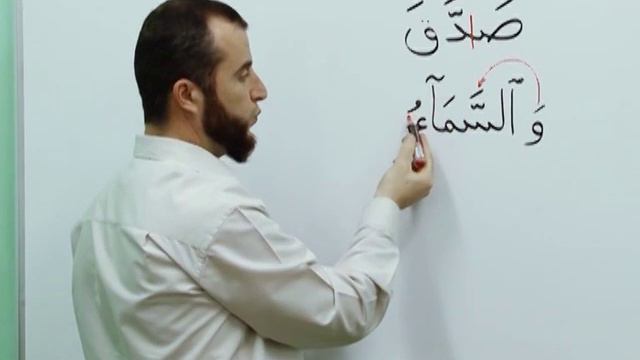 صَدَّقَ
وَٱلسَّمَآءُ